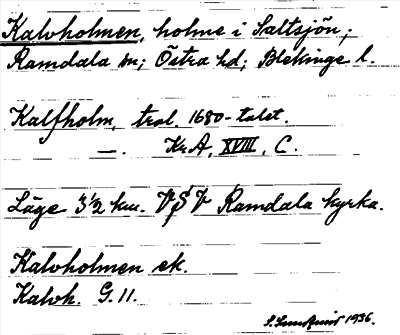 Kalvholmen, holme i Saltsjön;
Ramdala sn; Östra hd; Blekinge l.
Kalfholm, trol. 1680-talet.
—. KrA, XVIII, C.
Läge 3 1/2 km. VSV Ramdala kyrka.
Kalvholmen ek.
Kalvh. G. 11.
1936.